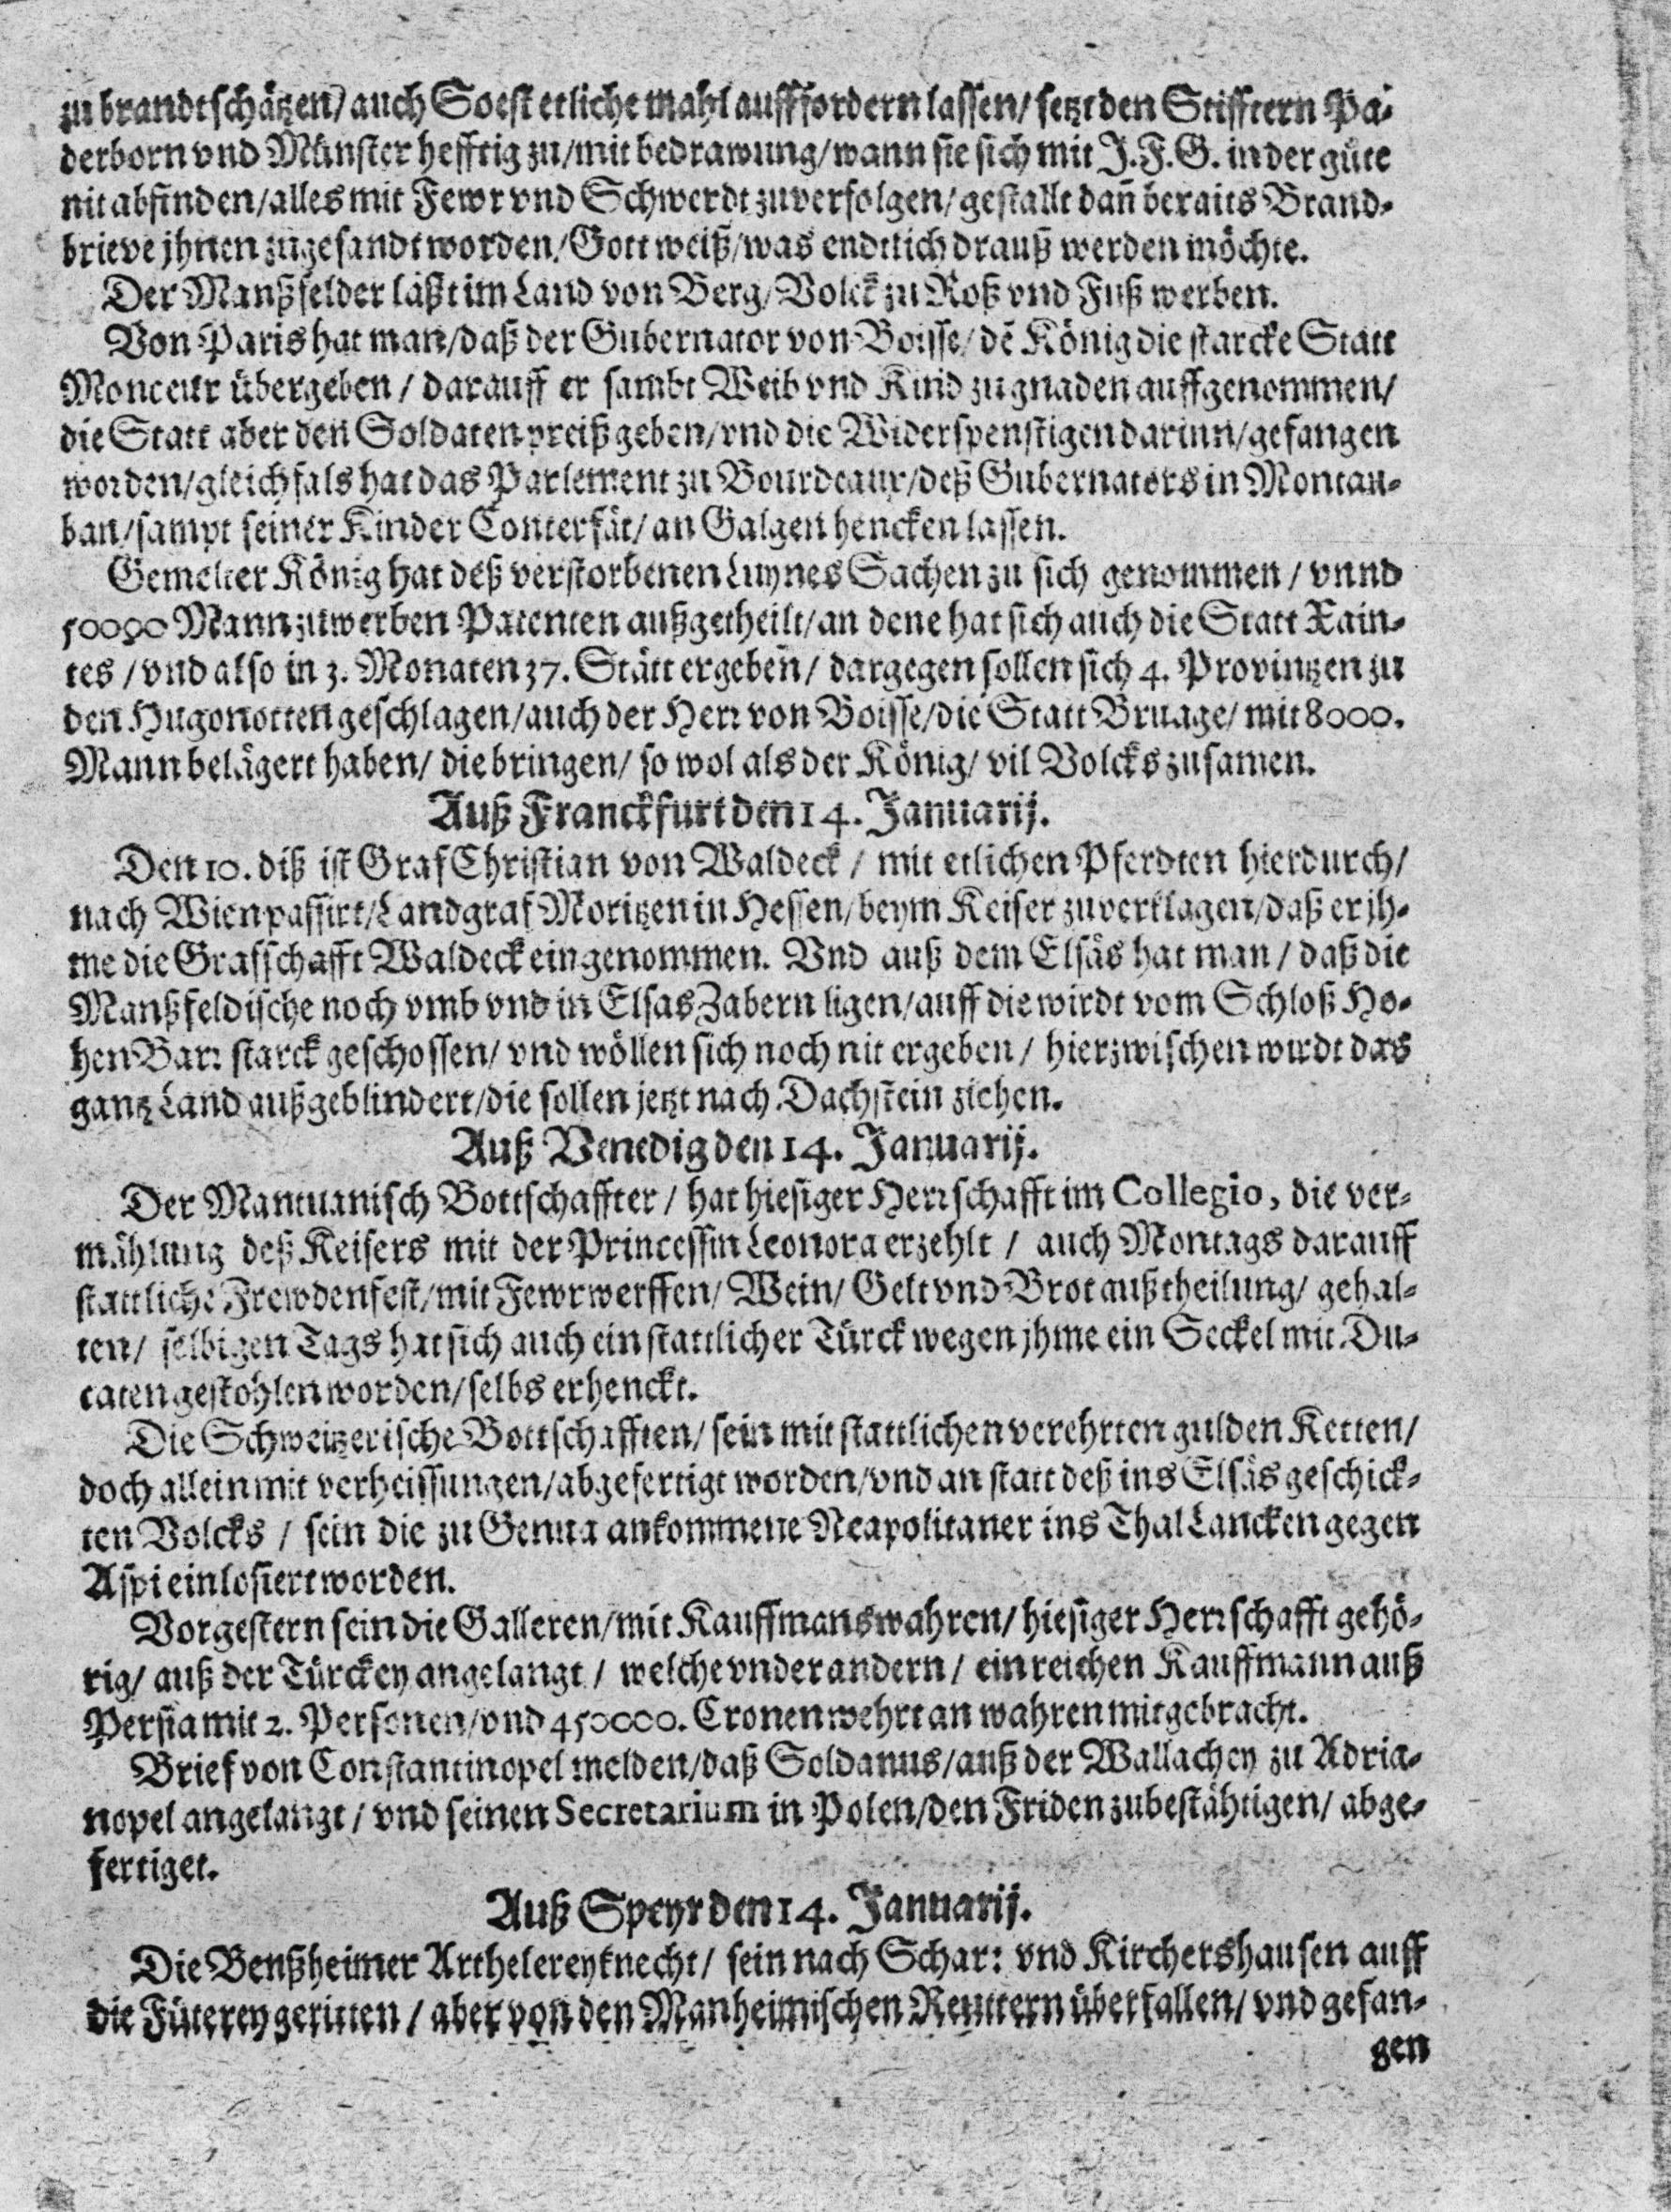 zu brandtschätzen/ auch Soest etliche mahl aufffordern lassen/ setzt den Stifftern Pa-
derborn vnd Münster hefftig zu/ mit bedrawung/ wann sie sich mit J.F.G. in der güte
nit abfinden/ alles mit Fewr vnd Schwerdt zuverfolgen/ gestallt dañ beraits Brand-
brieve jhnen zugesandt worden/ Gott weiß/ was endtlich drauß werden möchte.
Der Manßfelder läßt im Land von Berg/ Volck zu Roß vnd Fuß werben.
Von Paris hat man/ daß der Gubernator von Boisse/ dē König die starcke Statt
Monceur übergeben / darauff er sambt Weib vnd Kind zu gnaden auffgenommen/
die Statt aber den Soldaten preiß geben/ vnd die Widerspenstigen darinn/ gefangen
worden/ gleichfals hat das Parlement zu Bourdeaux/ deß Gubernators in Montau-
ban/ sampt seiner Kinder Conterfät/ an Galgen hencken lassen.
Gemelter König hat deß verstorbenen Luynes Sachen zu sich genommen / vnnd
50000 Mann zuwerben Patenten außgetheilt/ an dene hat sich auch die Statt Xain-
tes / vnd also in 3. Monaten 37. Stätt ergeben / dargegen sollen sich 4. Provintzen zu
den Hugonotten geschlagen/ auch der Herr von Boisse/ die Statt Bruage/ mit 8000.
Mann belägert haben/ die bringen/ so wol als der König/ vil Volcks zusamen.
Auß Franckfurt den 14. Januarij.
Den 10. diß ist Graf Christian von Waldeck / mit etlichen Pferdten hierdurch/
nach Wien passirt/ Landgraf Moritzen in Hessen/ beym Keiser zuverklagen/ daß er jh-
me die Grafschafft Waldeck eingenommen. Vnd auß dem Elsäs hat man / daß die
Manßfeldische noch vmb vnd in Elsas Zabern ligen/ auff die wirdt vom Schloß Ho-
hen Barr starck geschossen/ vnd wöllen sich noch nit ergeben / hierzwischen wirdt das
gantz Land außgeblindert/ die sollen jetzt nach Dachstein ziehen.
Auß Venedig den 14. Januarij.
Der Mantuanisch Bottschaffter / hat hiesiger Herrschafft im Collegio, die ver-
mählung deß Keisers mit der Princessin Leonora erzehlt / auch Montags darauff
stattliche Frewdenfest/ mit Fewrwerffen/ Wein/ Gelt vnd Brot außtheilung/ gehal-
ten/ selbigen Tags hat sich auch ein stattlicher Türck wegen jhme ein Seckel mit Du-
caten gestohlen worden/ selbs erhenckt.
Die Schweitzerische Bottschafften/ sein mit stattlichen verehrten gulden Ketten/
doch allein mit verheissungen/ abgefertigt worden/ vnd an statt deß ins Elsäs geschick-
ten Volcks / sein die zu Genua ankommene Neapolitaner ins Thal Lancken gegen
Aspi einlosiert worden.
Vorgestern sein die Galleren/ mit Kauffmanswahren/ hiesiger Herrschafft gehö-
rig/ auß der Türckey angelangt / welche vnder andern / ein reichen Kauffmann auß
Persia mit 2. Personen/ vnd 450000. Cronen wehrt an wahren mitgebracht.
Brief von Constantinopel melden/ daß Soldanus/ auß der Wallachey zu Adria-
nopel angelangt / vnd seinen Secretarium in Polen/ den Friden zubestähtigen/ abge-
fertiget.
Auß Speyr den 14. Januarij.
Die Benßheimer Arthelereyknecht/ sein nach Schar: vnd Kirchershausen auff
die Füterey geritten / aber von den Manheimischen Reuttern überfallen/ vnd gefan-
gen